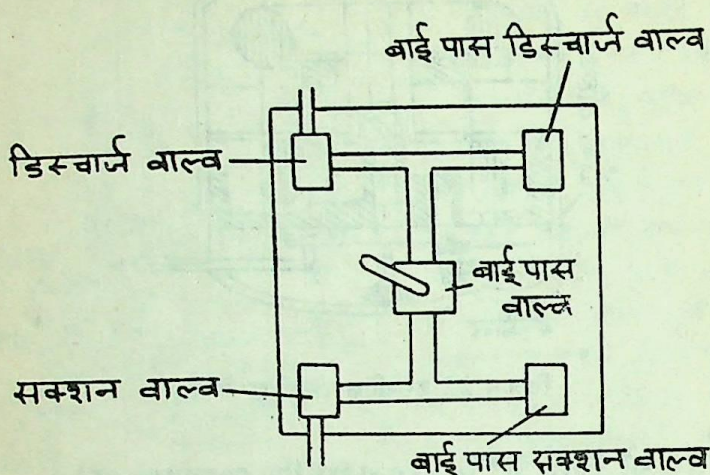 बाई पास डिस्चार्ज वाल्व
डिस्चार्ज वाल्व
बाई पास
वाल्व
सक्शन वाल्व
बाई पास सक्शन वाल्व